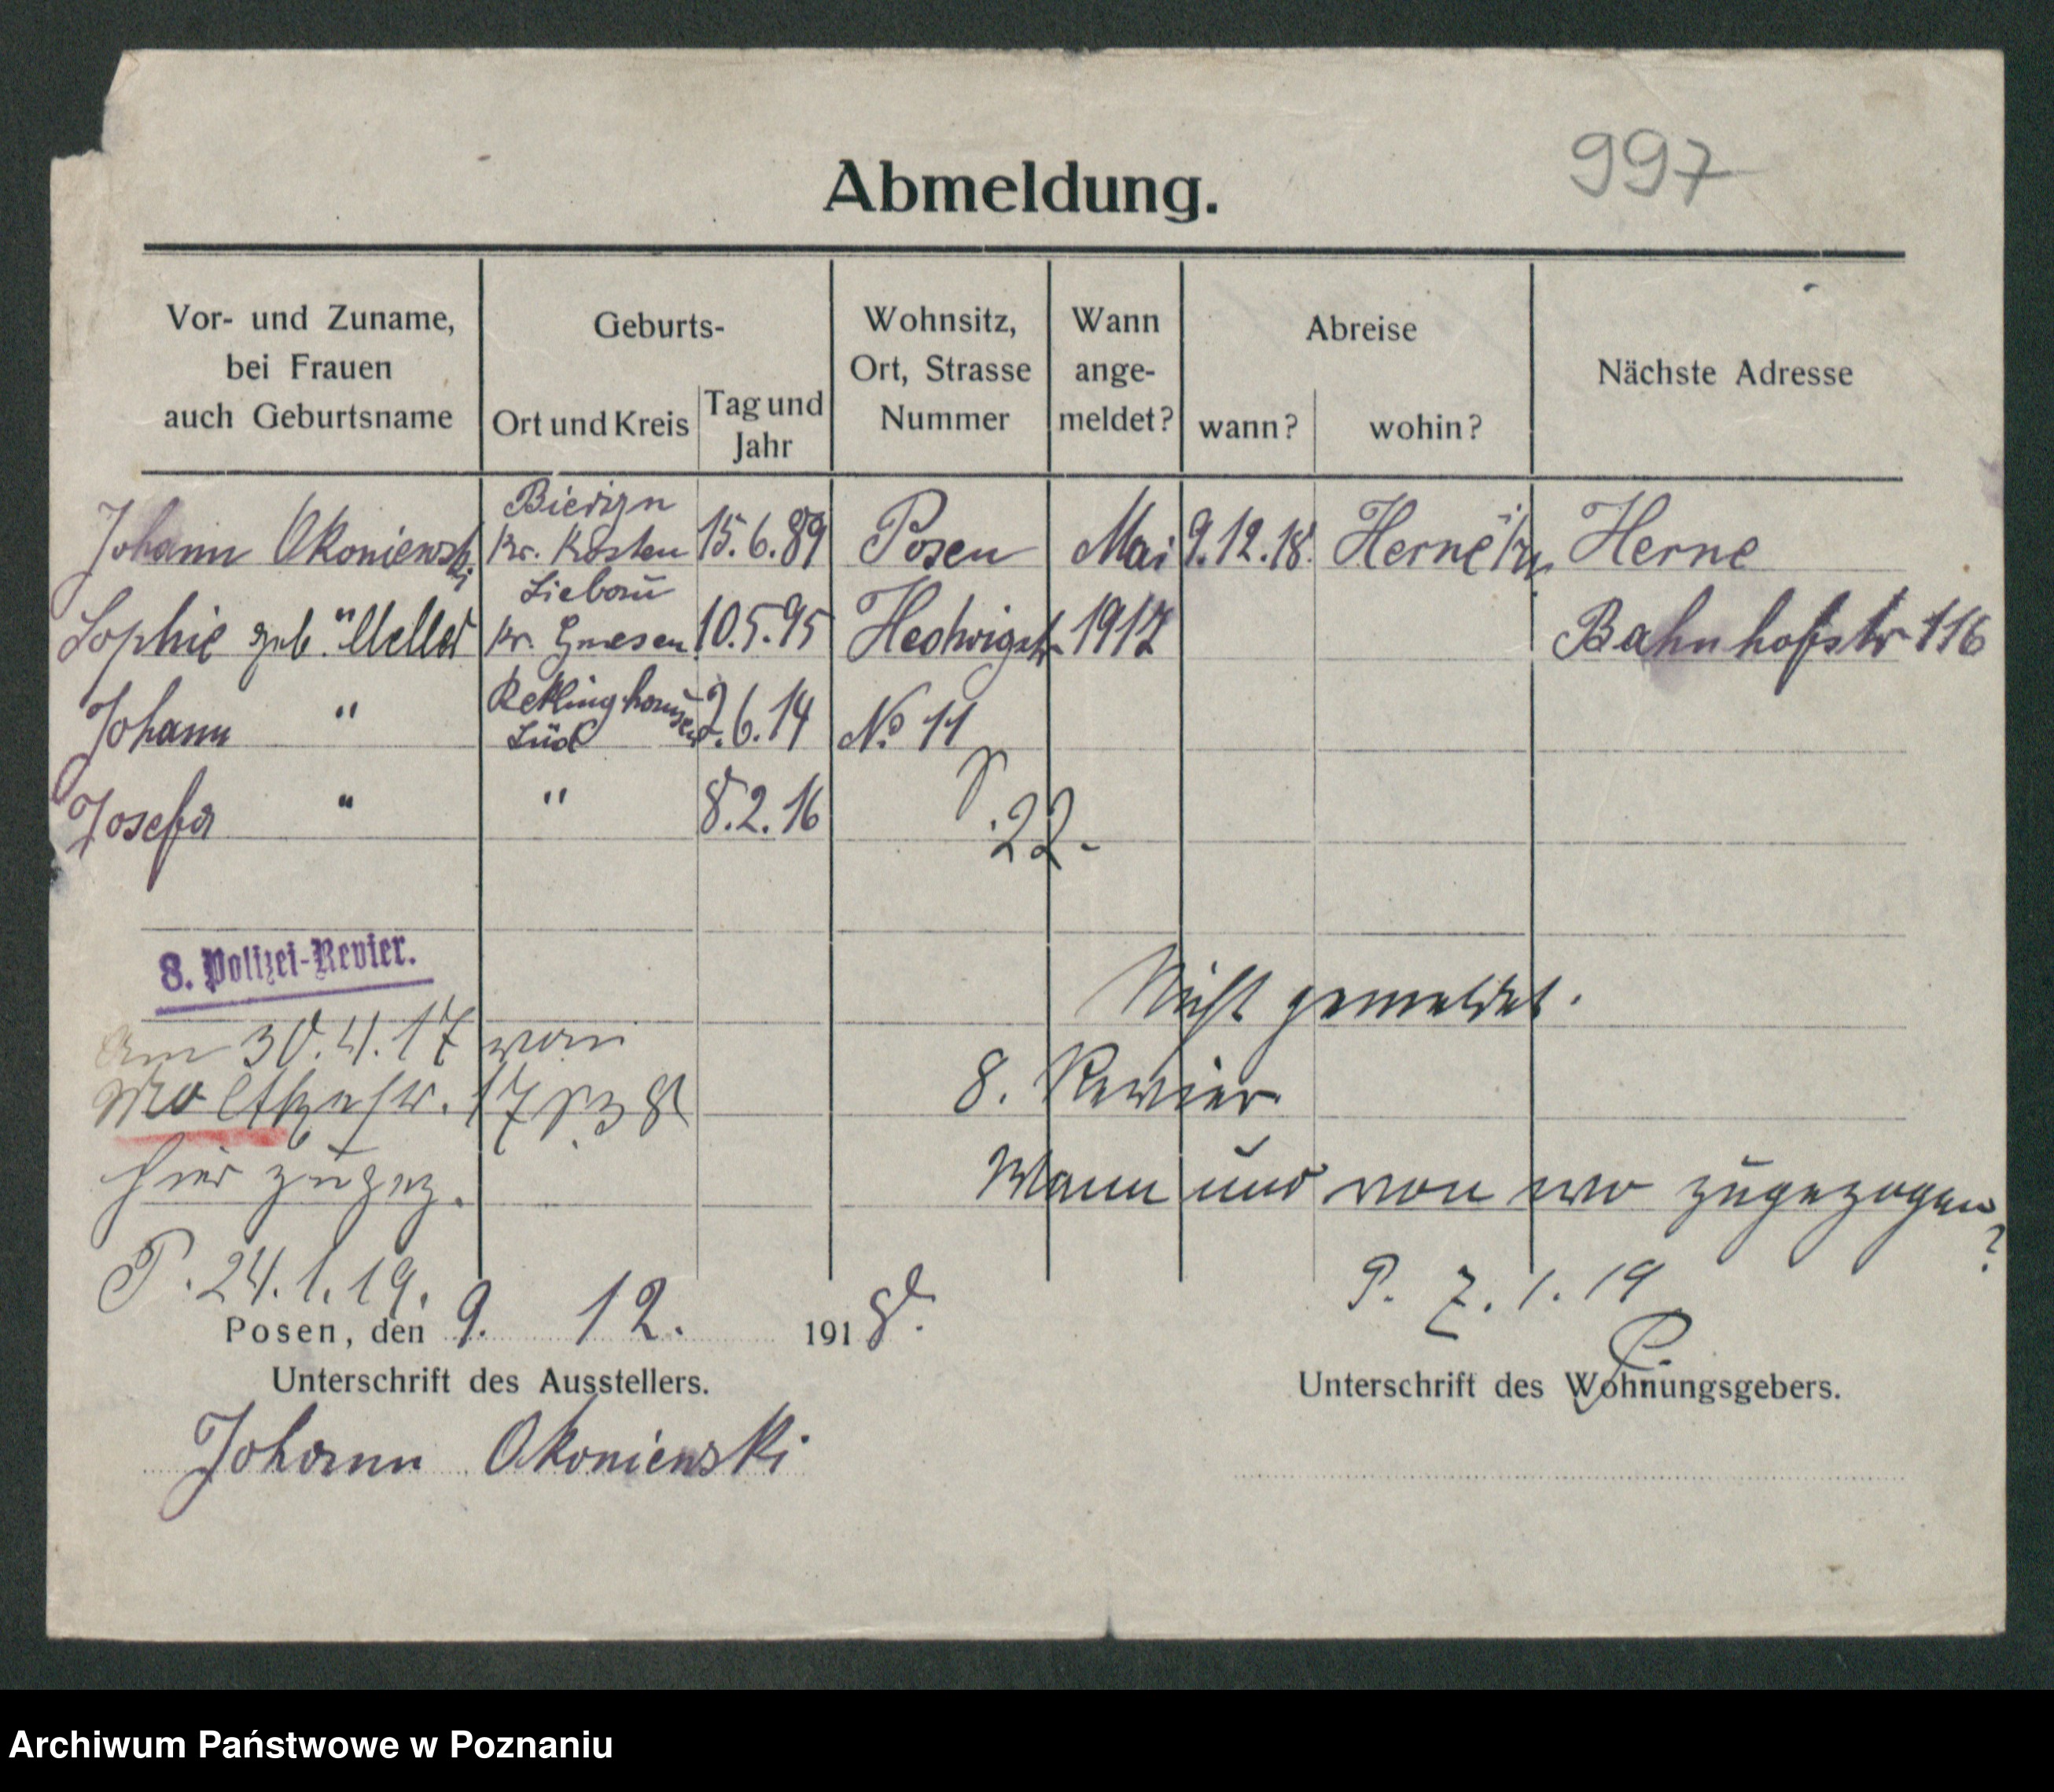 997
Abmeldung.
Vor- und Zuname, bei Frauen auch Geburtsname
Geburts-
Ort und Kreis
Tag und Jahr
Wohnsitz, Ort, Strasse Nummer
Wann angemeldet?
Abreise
wann?
wohin?
Nächste Adresse
Johann Okoniewski Bierizn Kr. Kosten 15.6.89 Posen Mai 9.12.18. Herne i/w. Herne
Sophie geb. Meller Liebau Kr. Gnesen 10.5.95 Hedwigstr 1917 Bahnhofstr 116
Johann " Reklinghausen Süd 2.6.14 No 11
Josefa " " 8.2.16
P. 22.
8. Polizei-Revier.
Nicht gemeldet.
am 30.4.17 von
8. Revier
Moltkestr. 17
Wann und von wo zugezogen?
hier zugez.
P. 24.1.19.
P. 7.1.19
Posen, den 9. 12. 1918.
Unterschrift des Ausstellers.
Unterschrift des Wohnungsgebers.
Johann Okoniewski
Archiwum Państwowe w Poznaniu